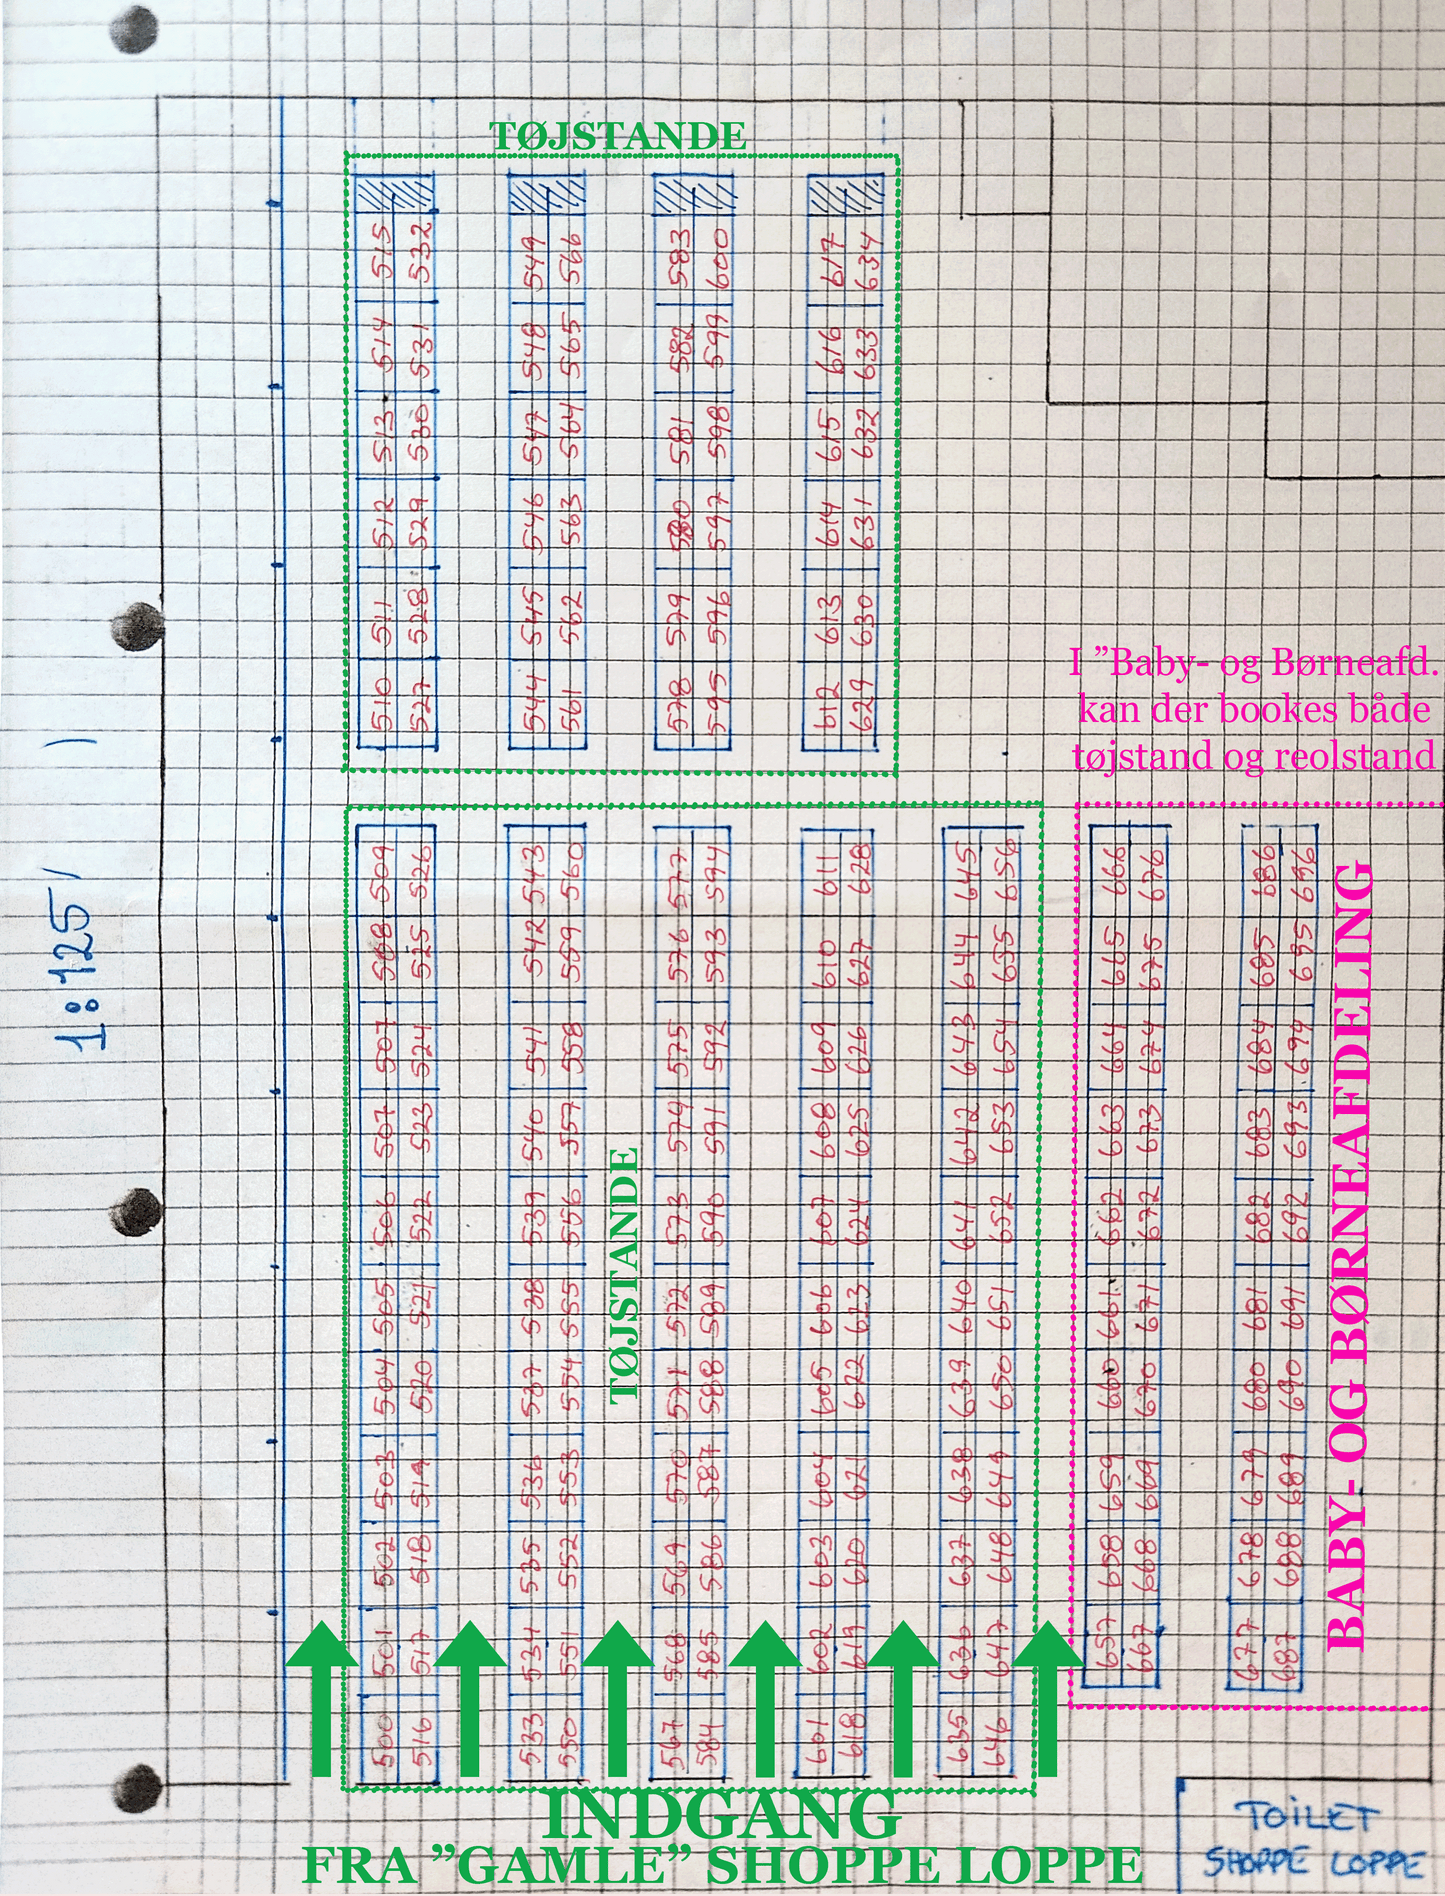 TØJSTANDE
515 532
549 566
583 600
617 634
514 531
548 565
582 599
616 633
513 530
547 564
581 598
615 632
512 529
546 563
580 597
614 631
511 528
545 562
579 596
613 630
510 527
544 561
578 595
612 629
I ”Baby- og Børneafd.
kan der bookes både
tøjstand og reolstand
1:125
509 526
543 560
577 594
611 628
645 656
666 676
686 696
508 525
542 559
576 593
610 627
644 655
665 675
685 695
507 524
541 558
575 592
609 626
643 654
664 674
684 694
507 523
540 557
574 591
608 625
642 653
663 673
683 693
506 522
539 556
573 590
607 624
641 652
662 672
682 692
505 521
538 555
572 589
606 623
640 651
661 671
681 691
504 520
537 554
571 588
605 622
639 650
660 670
680 690
503 519
536 553
570 587
604 621
638 649
659 669
679 689
502 518
535 552
569 586
603 620
637 648
658 668
678 688
501 517
534 551
568 585
602 619
636 647
657 667
677 687
500 516
533 550
567 584
601 618
635 646
TØJSTANDE
BABY- OG BØRNEAFDELING
INDGANG
FRA ”GAMLE” SHOPPE LOPPE
TOILET
SHOPPE LOPPE